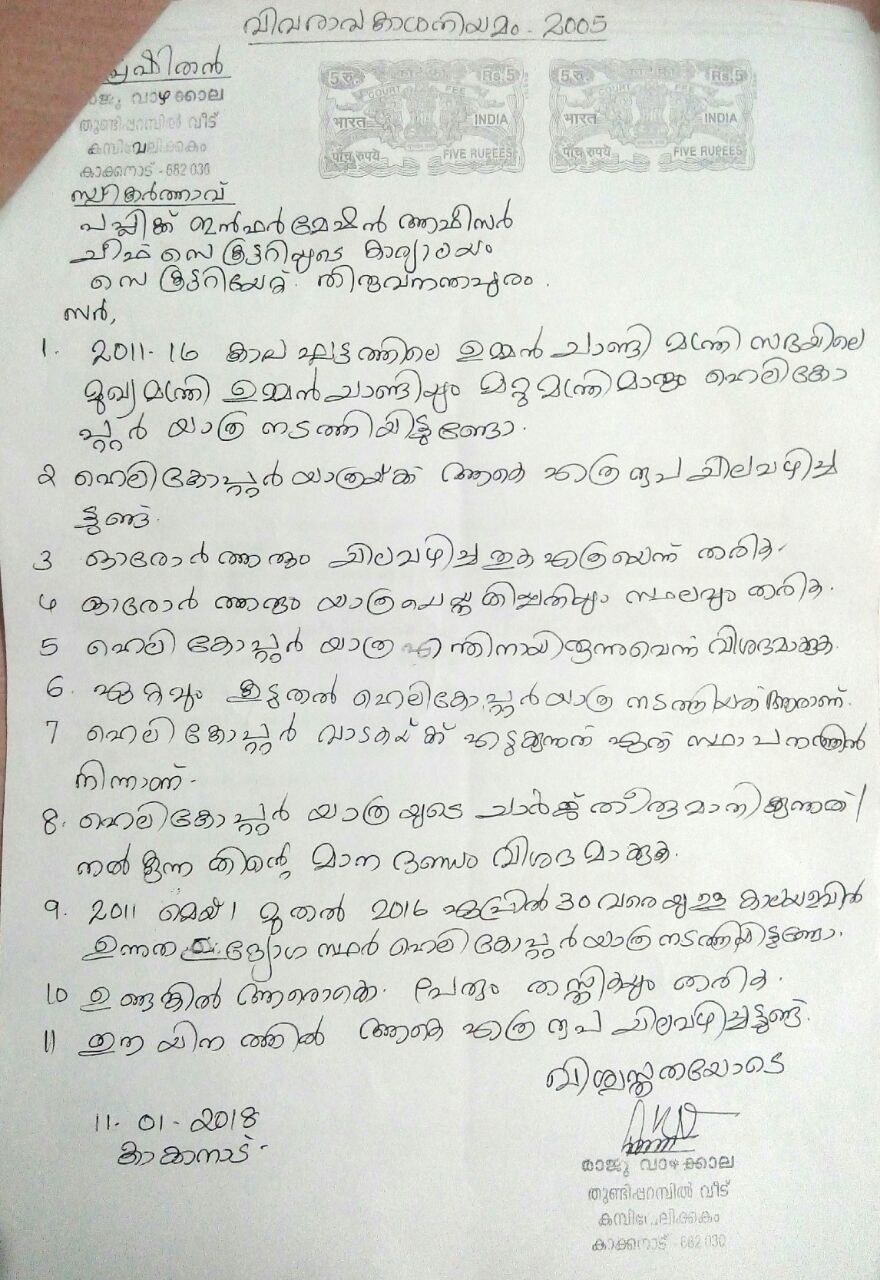 വിവരാവകാശനിയമം - 2005
പ്രേഷിതൻ
രാജു വാഴക്കാല
തുണ്ടിപ്പറമ്പിൽ വീട്
കമ്പിവേലിക്കകം
കാക്കനാട് - 682 030
5 रु. COURT FEE Rs.5
भारत INDIA
पाँच रुपये FIVE RUPEES
5 रु. COURT FEE Rs.5
भारत INDIA
पाँच रुपये FIVE RUPEES
സ്വീകർത്താവ്
പബ്ലിക്ക് ഇൻഫർമേഷൻ ആഫീസർ
ചീഫ് സെക്രട്ടറിയുടെ കാര്യാലയം
സെക്രട്ടറിയേറ്റ്. തിരുവനന്തപുരം.
സർ,
1. 2011-16 കാലഘട്ടത്തിലെ ഉമ്മൻ ചാണ്ടി മന്ത്രി സഭയിലെ
മുഖ്യമന്ത്രി ഉമ്മൻ ചാണ്ടിയും മറ്റു മന്ത്രിമാരും ഹെലികോ
പ്റ്റർ യാത്ര നടത്തിയിട്ടുണ്ടോ.
2 ഹെലികോപ്റ്റർ യാത്രയ്ക്ക് ആകെ എത്ര രൂപ ചിലവഴിച്ചി
ട്ടുണ്ട്.
3 ഓരോർത്തരും ചിലവഴിച്ച തുക എത്രയെന്ന് തരിക.
4 ഓരോർത്തരും യാത്രചെയ്ത തിയ്യതിയും സ്ഥലവും തരിക.
5 ഹെലികോപ്റ്റർ യാത്ര എന്തിനായിരുന്നുവെന്ന് വിശദമാക്കുക.
6. ഏറ്റവും കൂടുതൽ ഹെലികോപ്റ്റർ യാത്ര നടത്തിയത് ആരാണ്.
7 ഹെലികോപ്റ്റർ വാടകയ്ക്ക് എടുക്കുന്നത് ഏത് സ്ഥാപനത്തിൽ
നിന്നാണ്.
8. ഹെലികോപ്റ്റർ യാത്രയുടെ ചാർജ്ജ് തീരുമാനിക്കുന്നത്/
നൽകുന്നതിന്റെ മാനദണ്ഡം വിശദമാക്കുക.
9. 2011 മെയ് 1 മുതൽ 2016 ഏപ്രിൽ 30 വരെയുള്ള കാലയളവിൽ
ഉന്നത ഉദ്യോഗസ്ഥർ ഹെലികോപ്റ്റർ യാത്ര നടത്തിയിട്ടുണ്ടോ.
10 ഉണ്ടെങ്കിൽ ആരൊക്കെ. പേരും തസ്തികയും തരിക.
11 ഈ യിനത്തിൽ ആകെ എത്ര രൂപ ചിലവഴിച്ചിട്ടുണ്ട്.
വിശ്വസ്തതയോടെ
11-01-2018
കാക്കനാട്.
രാജു വാഴക്കാല
തുണ്ടിപ്പറമ്പിൽ വീട്
കമ്പിവേലിക്കകം
കാക്കനാട് - 682 030